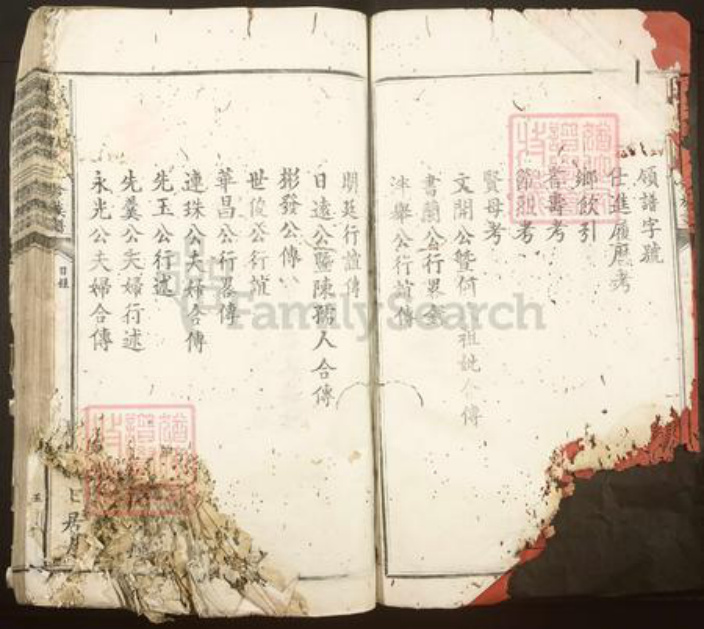 領譜字號
仕進履歷考
鄉飲引
耆壽考
節烈考
賢母考
文開公暨何 祖妣合傳
書蘭公行畧
泮舉公行誼傳
明廷行誼傳
日遠公暨陳孺人合傳
彬發公傳
世俊公行誼
華昌公行畧傳
連珠公夫婦合傳
先玉公行述
先羹公夫婦行述
永光公夫婦合傳
目錄
FamilySearch